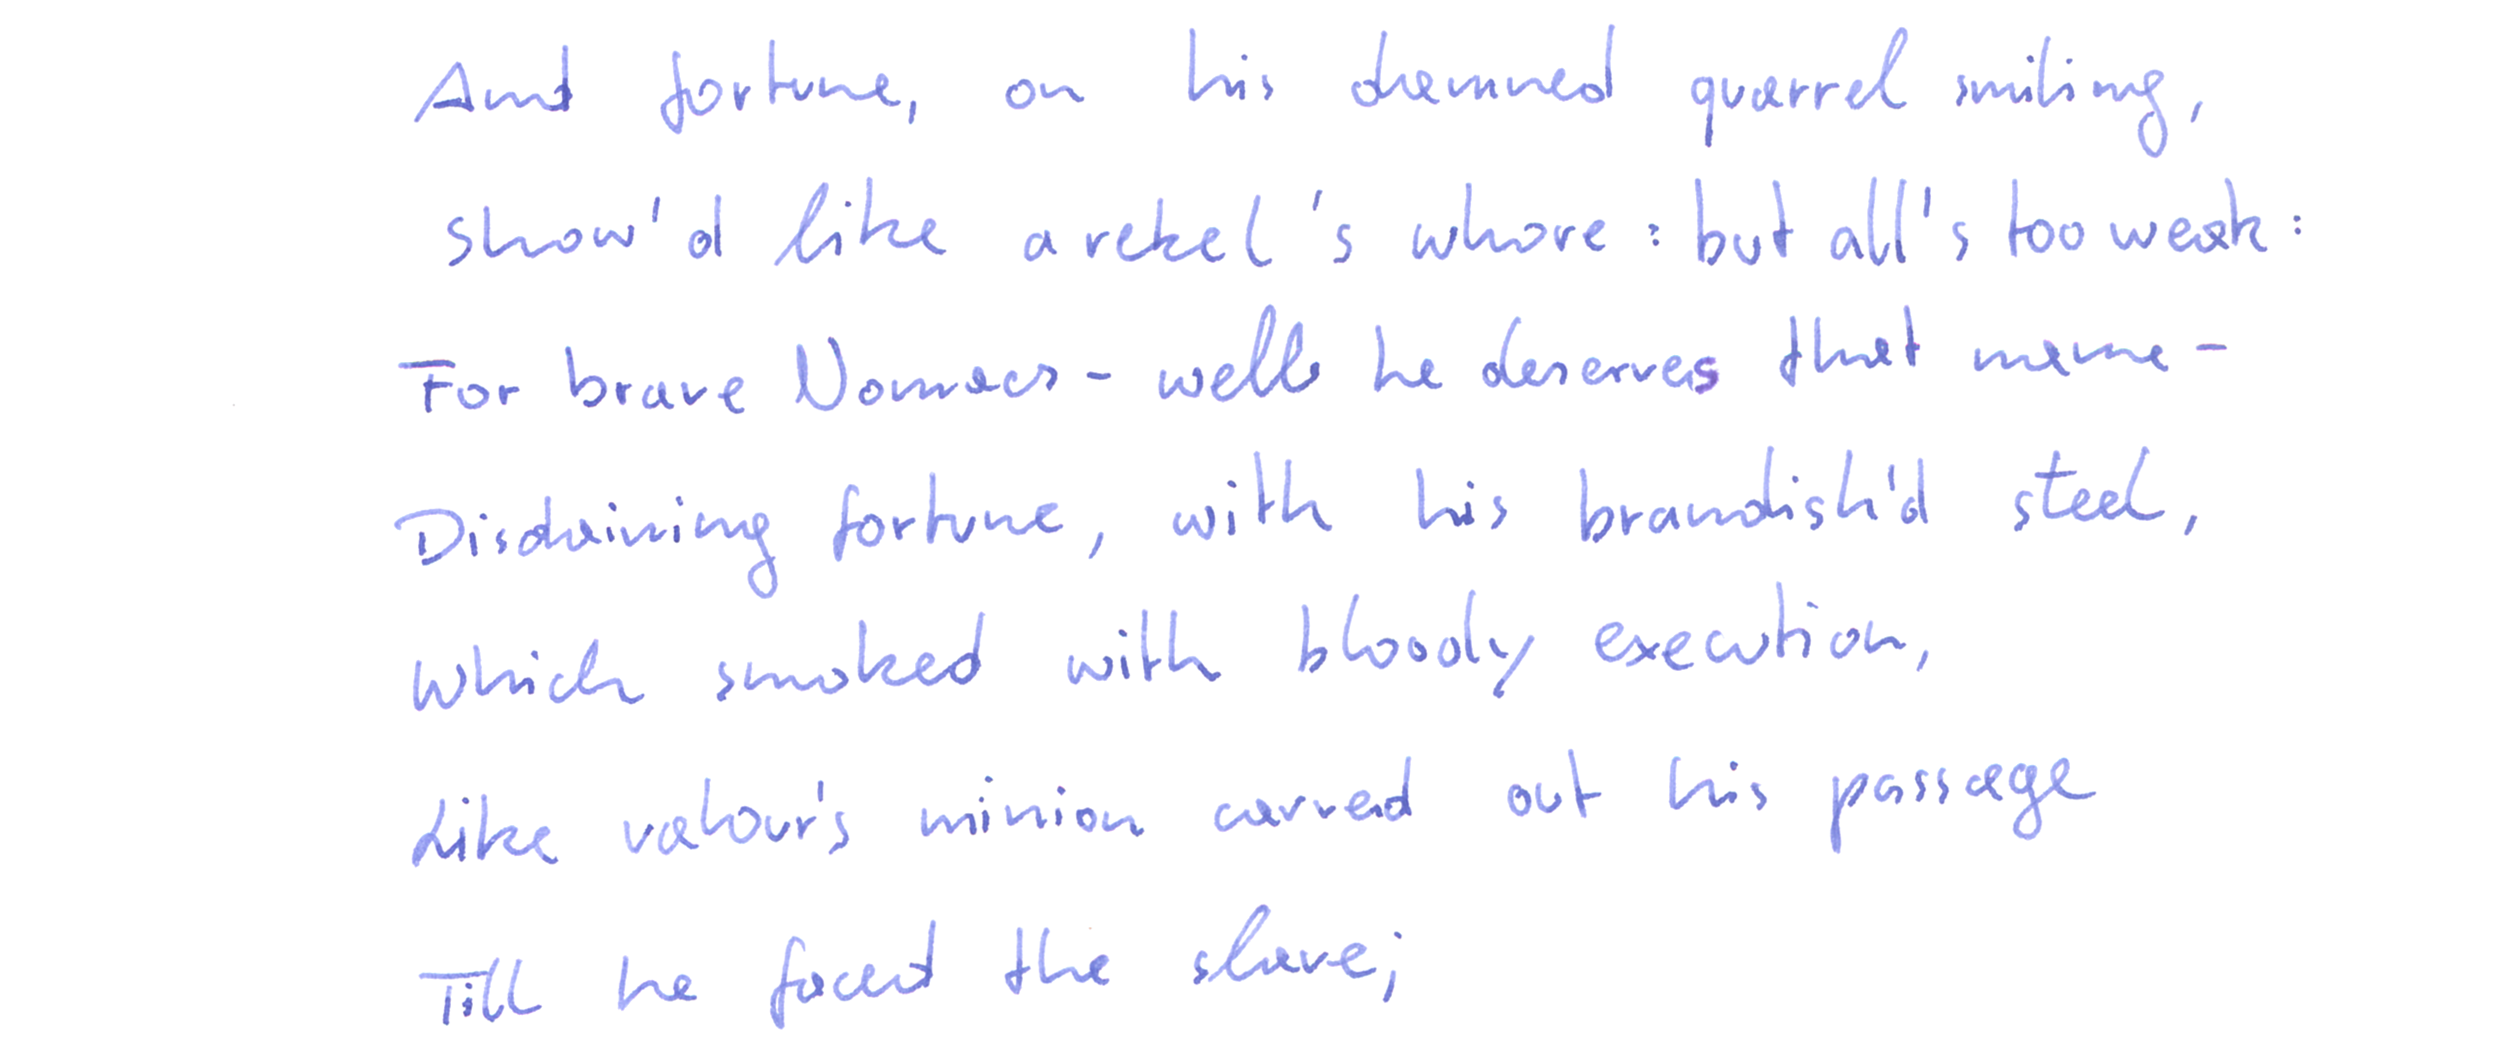 And fortune, on his damned quarrel smiling,
show'd like a rebel's whore: but all's too weak:
For brave Nomacs - well he deserves that name -
Disdaining fortune, with his brandish'd steel,
which smoked with bloody execution,
Like valour's minion carved out his passage
Till he faced the slave;